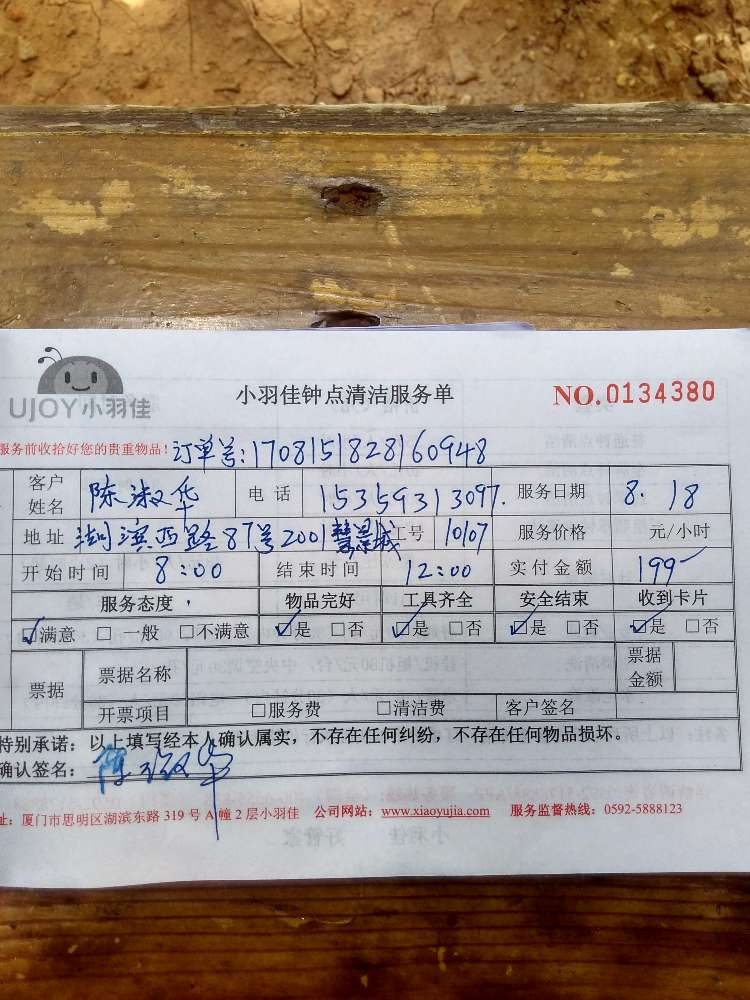 UJOY小羽佳
小羽佳钟点清洁服务单
NO.0134380
服务前收拾好您的贵重物品! 订单号:1708151828160948
客户姓名 陈淑华 电话 15359313097. 服务日期 8.18
地址 湖滨西路87号2001慧景城 工号 10107 服务价格 元/小时
开始时间 8:00 结束时间 12:00 实付金额 199
服务态度 物品完好 工具齐全 安全结束 收到卡片
☑满意 □一般 □不满意 ☑是 □否 ☑是 □否 ☑是 □否 ☑是 □否
票据 票据名称 票据金额
开票项目 □服务费 □清洁费 客户签名
特别承诺：以上填写经本人确认属实，不存在任何纠纷，不存在任何物品损坏。
确认签名：陈淑华
址：厦门市思明区湖滨东路319号A幢2层小羽佳 公司网站：www.xiaoyujia.com 服务监督热线：0592-5888123